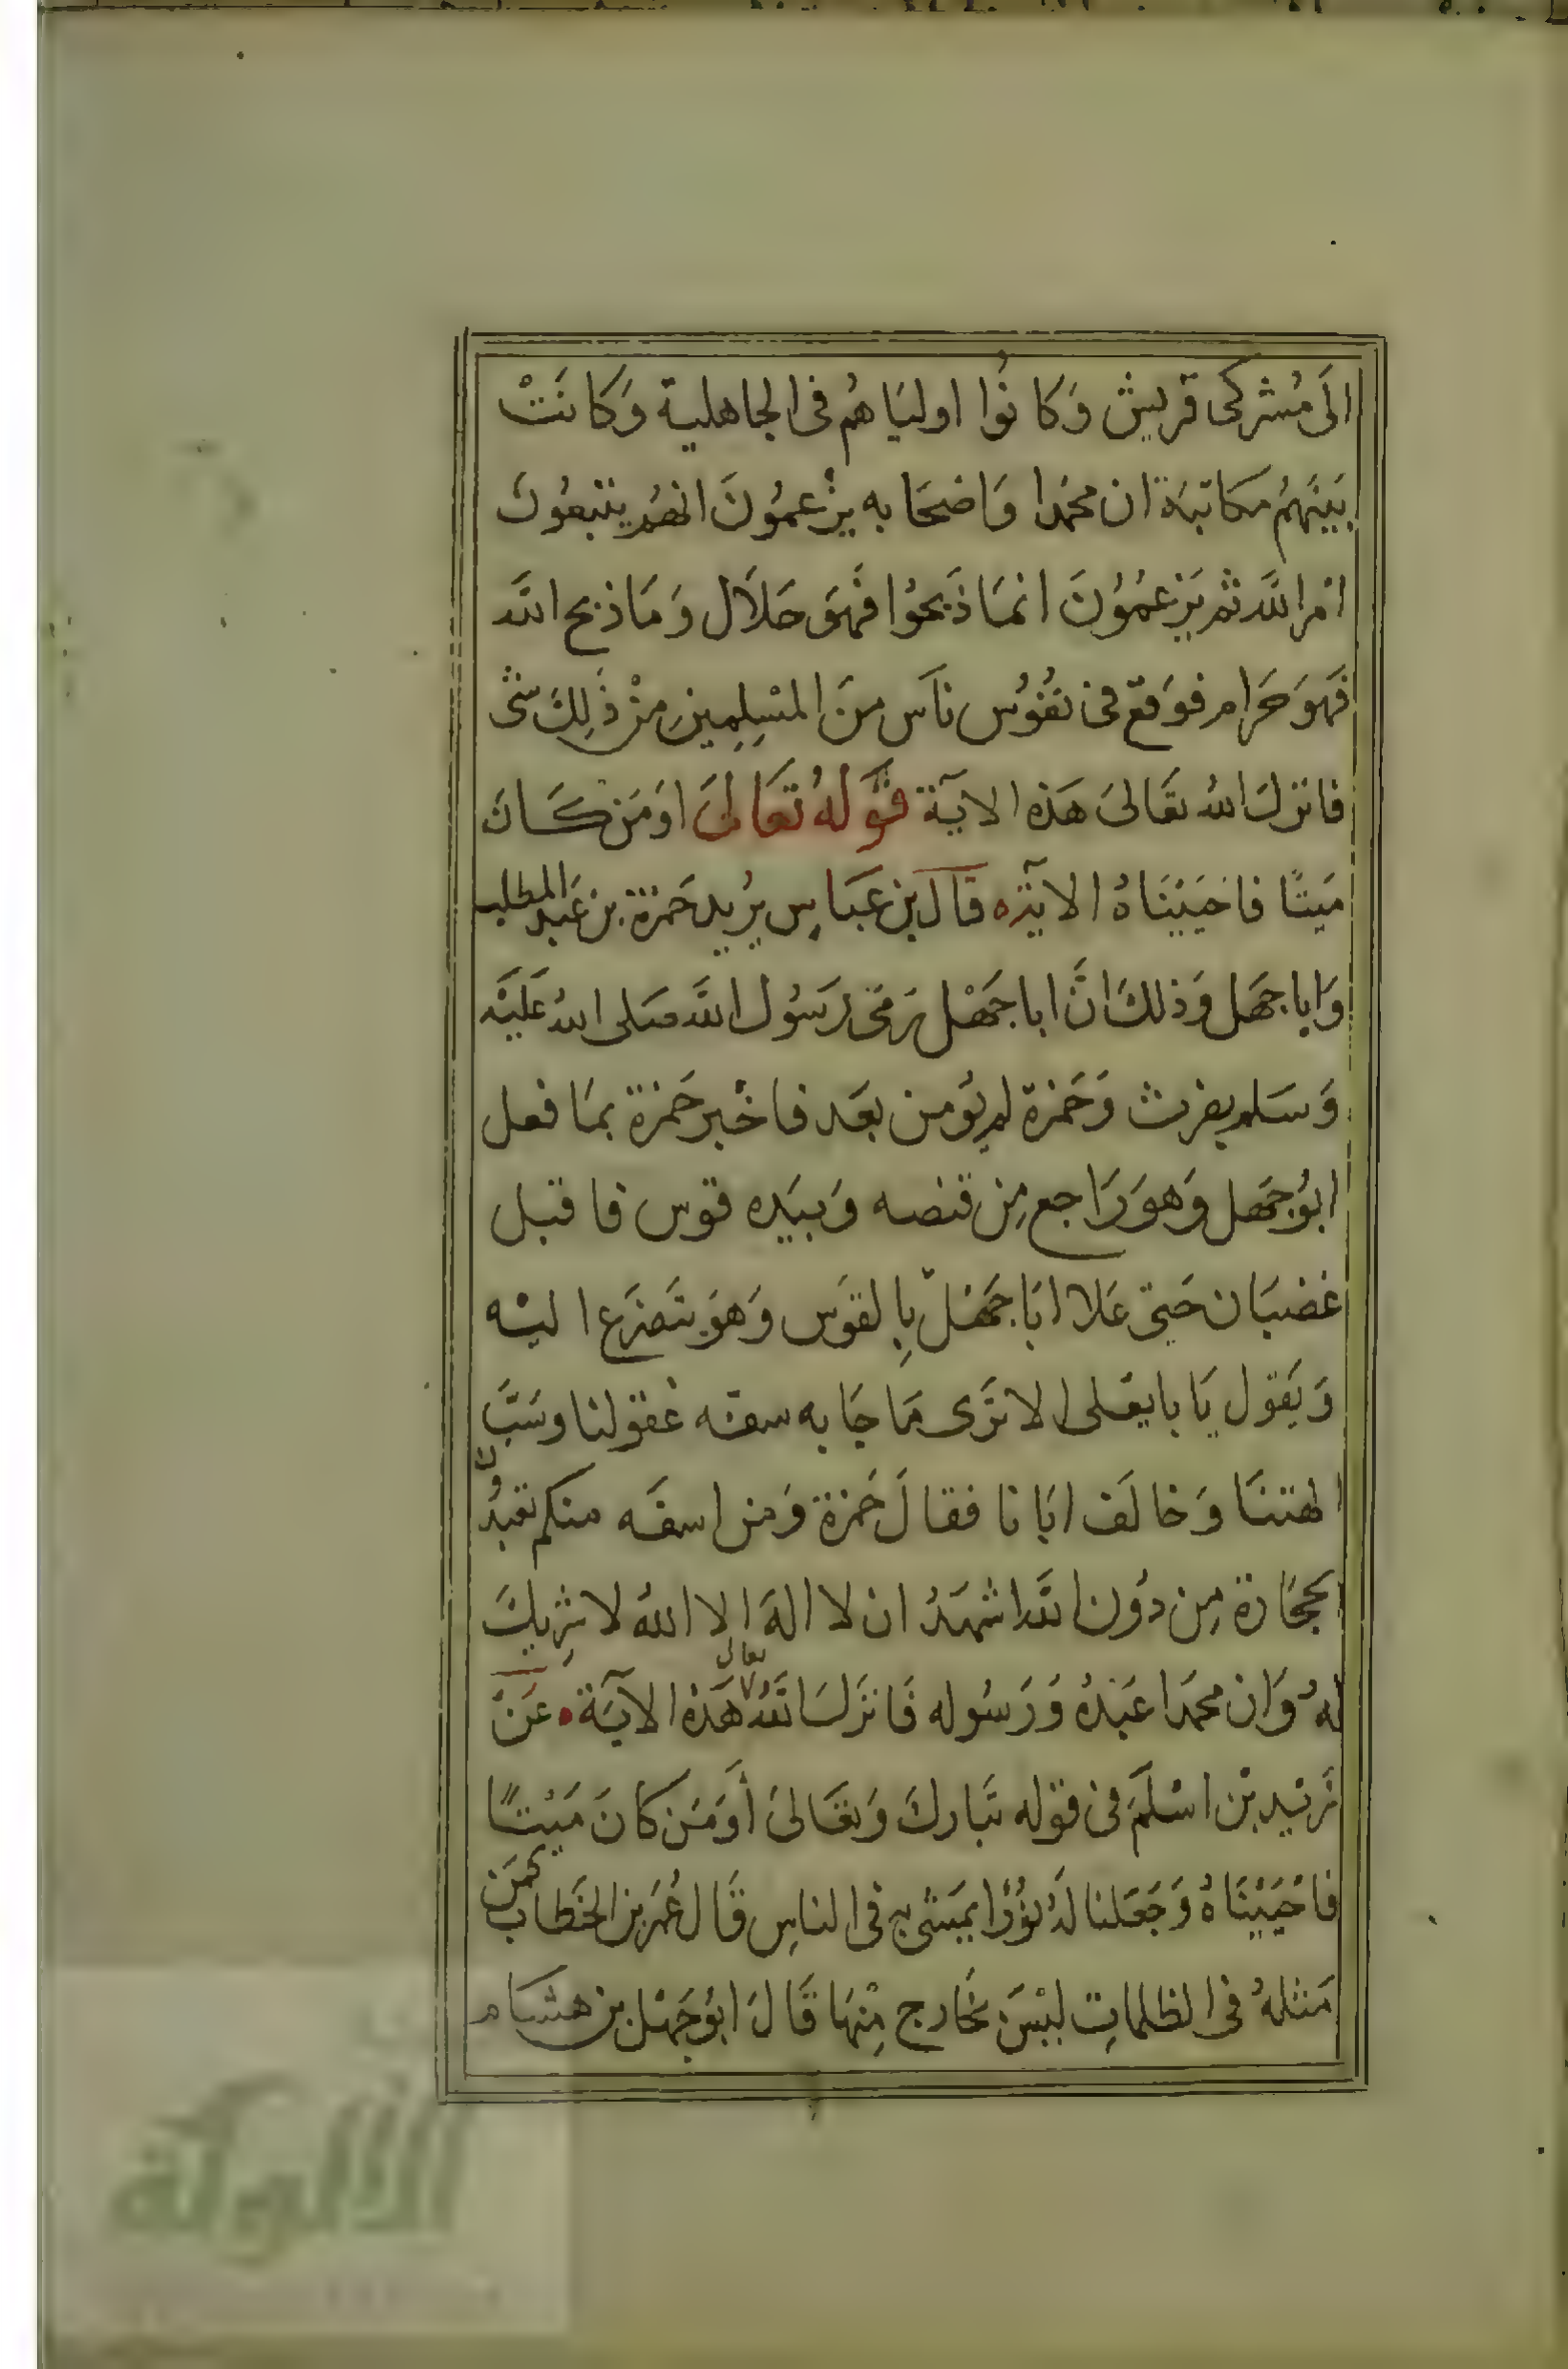 الَى مُشركى قريش وَكا نوُا اوليَاهُم فى الجاهلية وَكانَتْ
بَينَهُم مكاتبَة ان محمَدا وَاضحَابه يزْعمُونَ انهُم يتبعُونَ
امْرالله ثم يَزعُمُونَ انمَا ذَبحوُا فهَوَ حلاَل وَمَا ذبح اللَّه
فَهوَ حَرام فوَقعَ فى نفُوُس ناَس منَ المسْلِمِينِ مِنْ ذَلِكَ شى
فانزلَ اللهُ تعَالىَ هَذه الايَة قَوَلهُ تعَالىَ اوَمَن كَانَ
مَيتًا فاحَيَيْنَاهُ الايَة ه قالَ بن عَبَاسٍ يرُيد حَمزة بن عَبد المطلب
وَاباجهَل وَذلكَ انَّ اباجَهْل رمَى رَسُول اللَّه صَلى اللهُ عَليَه
وَسَلم بفرث وَحَمزة لم يؤمن بعَد فاخبر حَمزة بمَا فعل
ابوُجَهل وَهوَ رَاجع مِن قنصه وَبيَده قوس فاقبل
غضبَان حَتى عَلا ابَاجَهْل بِالقوَس وَهوَ يتَضرَع اليْه
وَيَقول يَا بايعْلى الا ترَى مَا جَا به سفه عُقولنا وسَبَّ
الهتنَا وَخالَف ابَانا فقالَ حَمزة وَمن اسفَه منكم تعَبدُون
الحجَارَة مِن دوُن الله اشهَدُ ان لا الهَ الا اللهُ لا شرِيكَ
لهُ وَان محمَدا عَبَدهُ وَرَسُوله فَانزَلَ اللهُ تعالى هَذه الايَة ه عَنْ
زَيْد بْن اسْلَمَ فى قوله تبَاركَ وَتعَالىَ أوَمَن كانَ مَيْتًا
فاحْيَيْنَاهُ وَجَعَلنا لَهُ نوُرًا يَمشى بهِ فى الناسِ قَالَ عُمَر بن الخَطاب كَمَن
مَثلهُ فى الظلمات ليْسَ بخَارج مِنْهَا قَالَ ابوُجَهْل بن هشَام
الألوكة